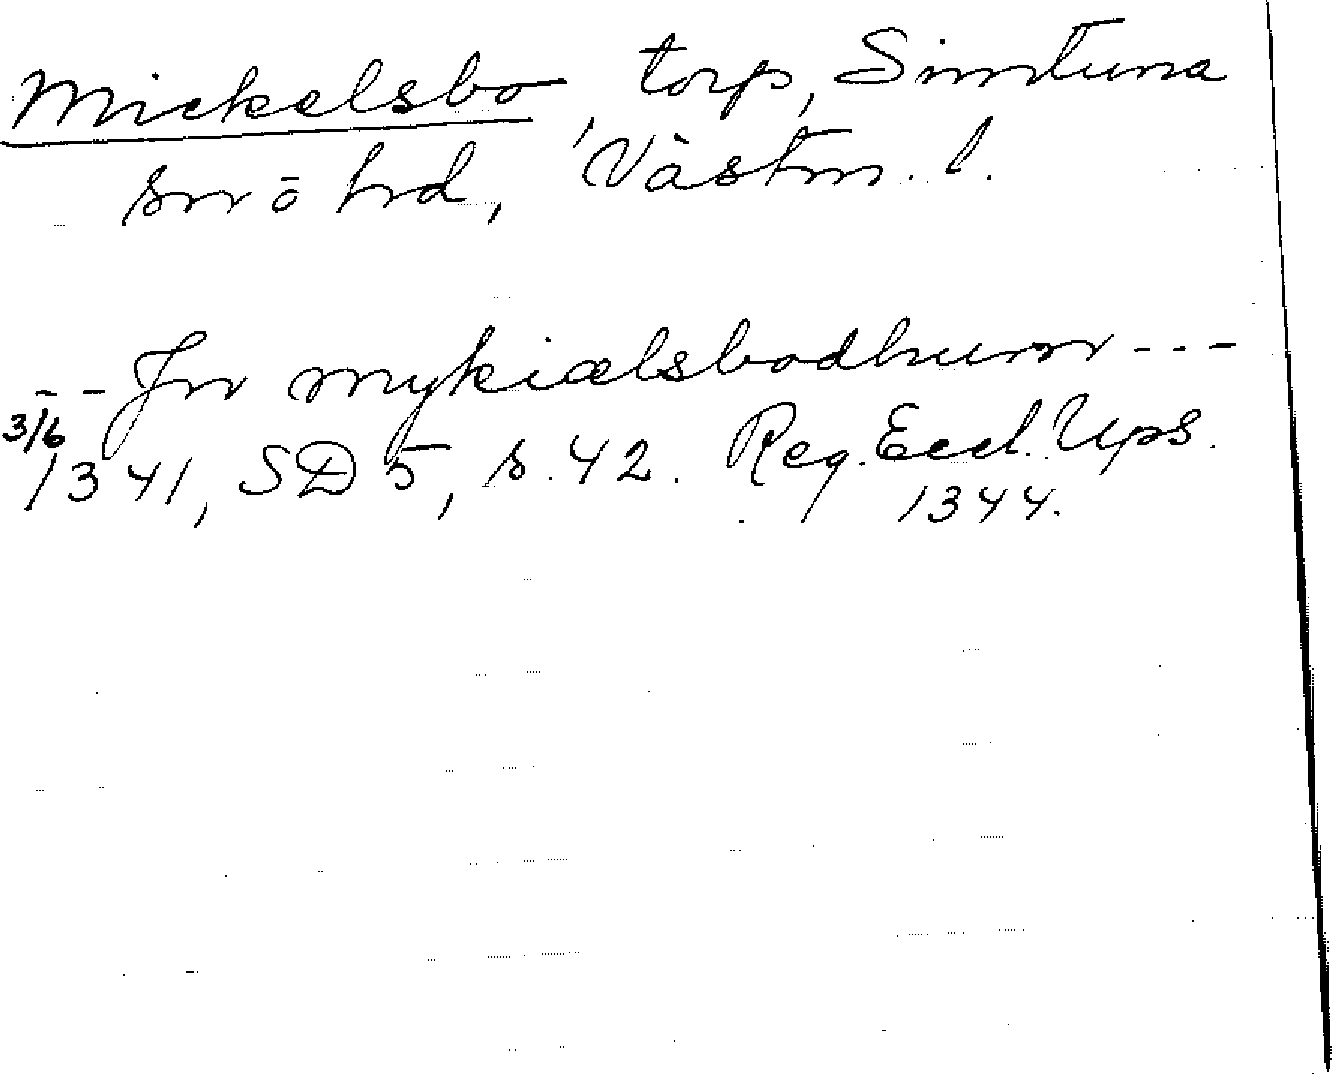 Mickelsbo, torp, Simtuna
sn o hd, Västm. l.
-- Jn mykiælsbodhum ---
3/6
1341, SD 5, s. 42. Reg. Eccl. Ups.
1344.